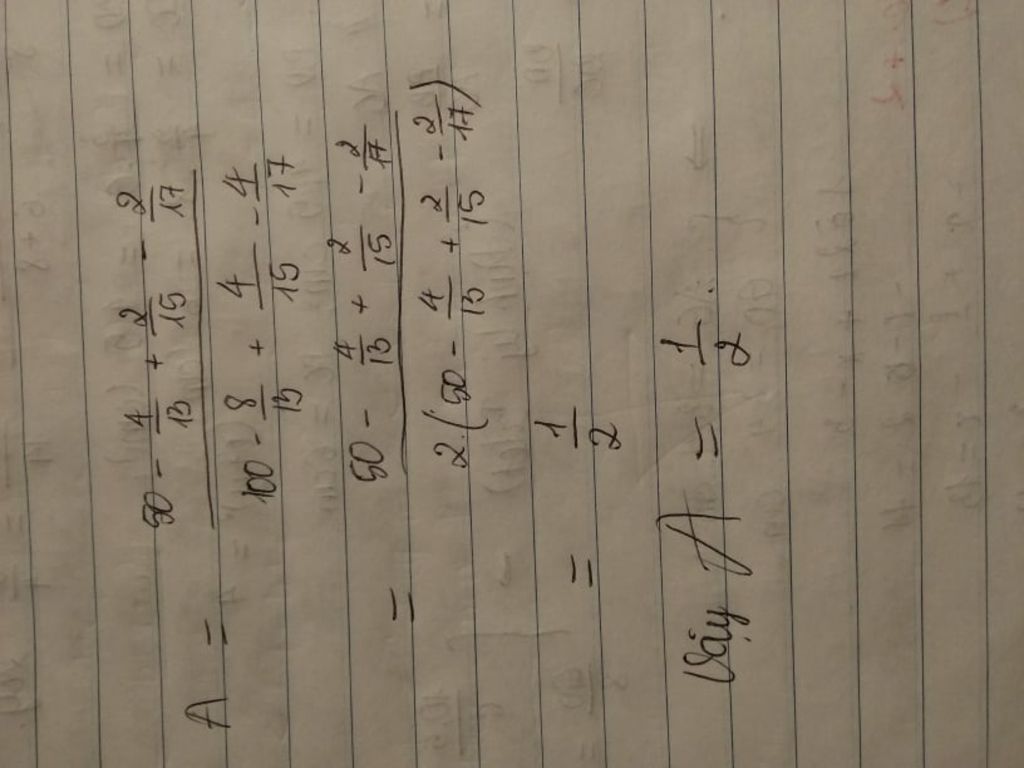 A = \frac{50 - \frac{4}{13} + \frac{2}{15} - \frac{2}{17}}{100 - \frac{8}{13} + \frac{4}{15} - \frac{4}{17}}
= \frac{50 - \frac{4}{13} + \frac{2}{15} - \frac{2}{17}}{2.(50 - \frac{4}{13} + \frac{2}{15} - \frac{2}{17})}
= \frac{1}{2}
Vậy A = \frac{1}{2}